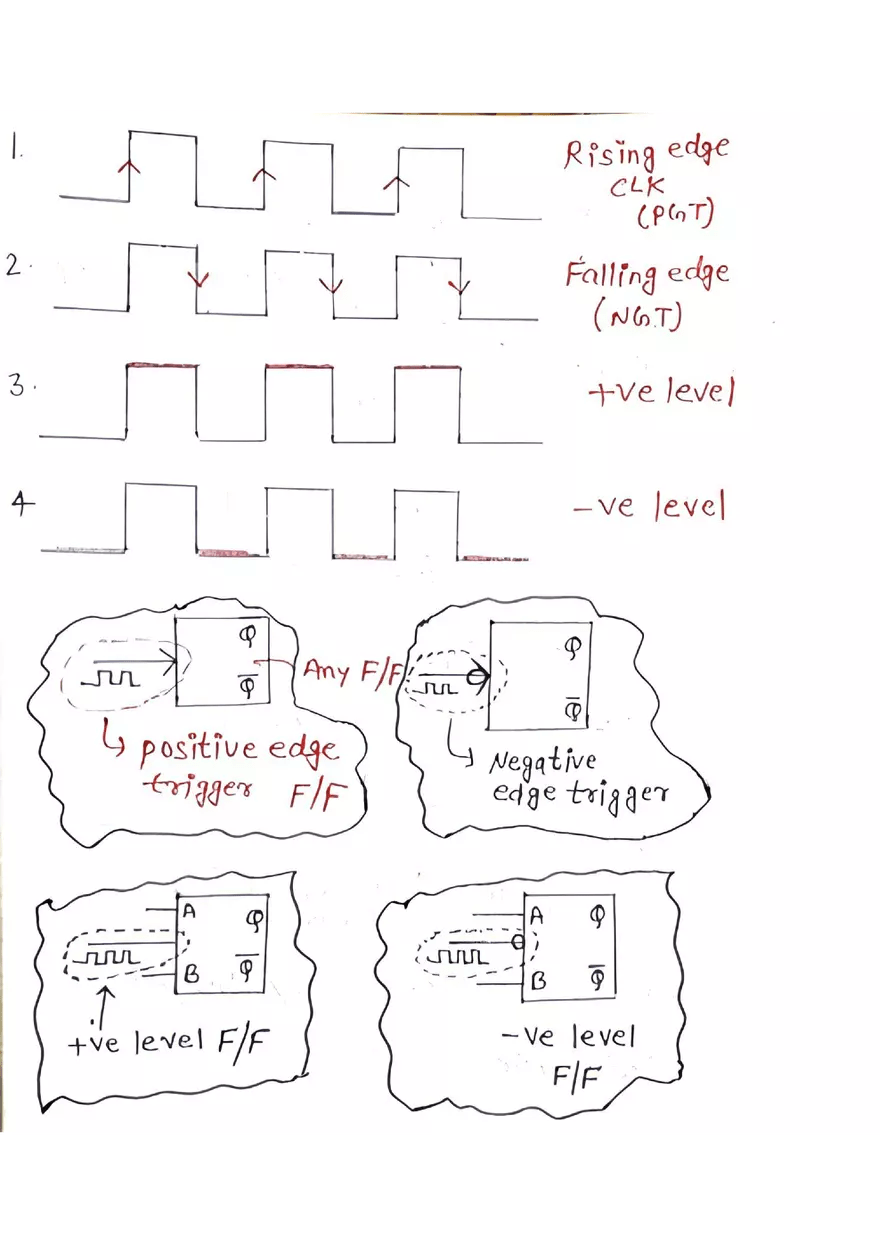 1.
Rising edge
CLK
(PGT)
2.
Falling edge
(NG.T)
3.
+ve level
4
-ve level
Q
Q̅
Any F/F
Q
Q̅
↳ positive edge
trigger F/F
↳ Negative
edge trigger
A Q
B Q̅
+ve level F/F
A Q
B Q̅
-ve level
F/F